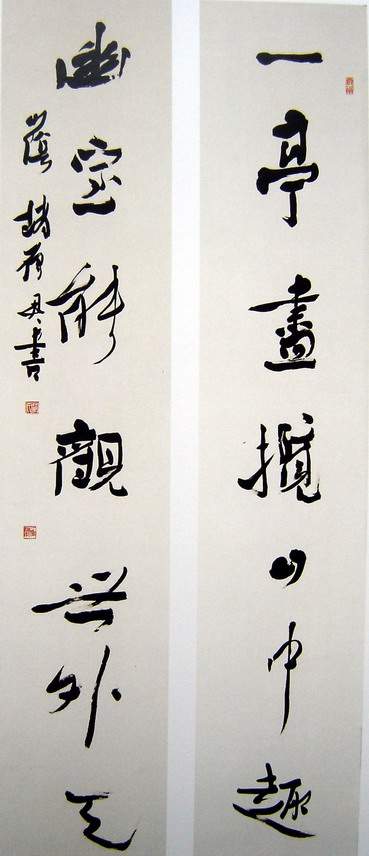 一亭盡攬山中趣
幽室能觀世外天
山陰趙雁君書